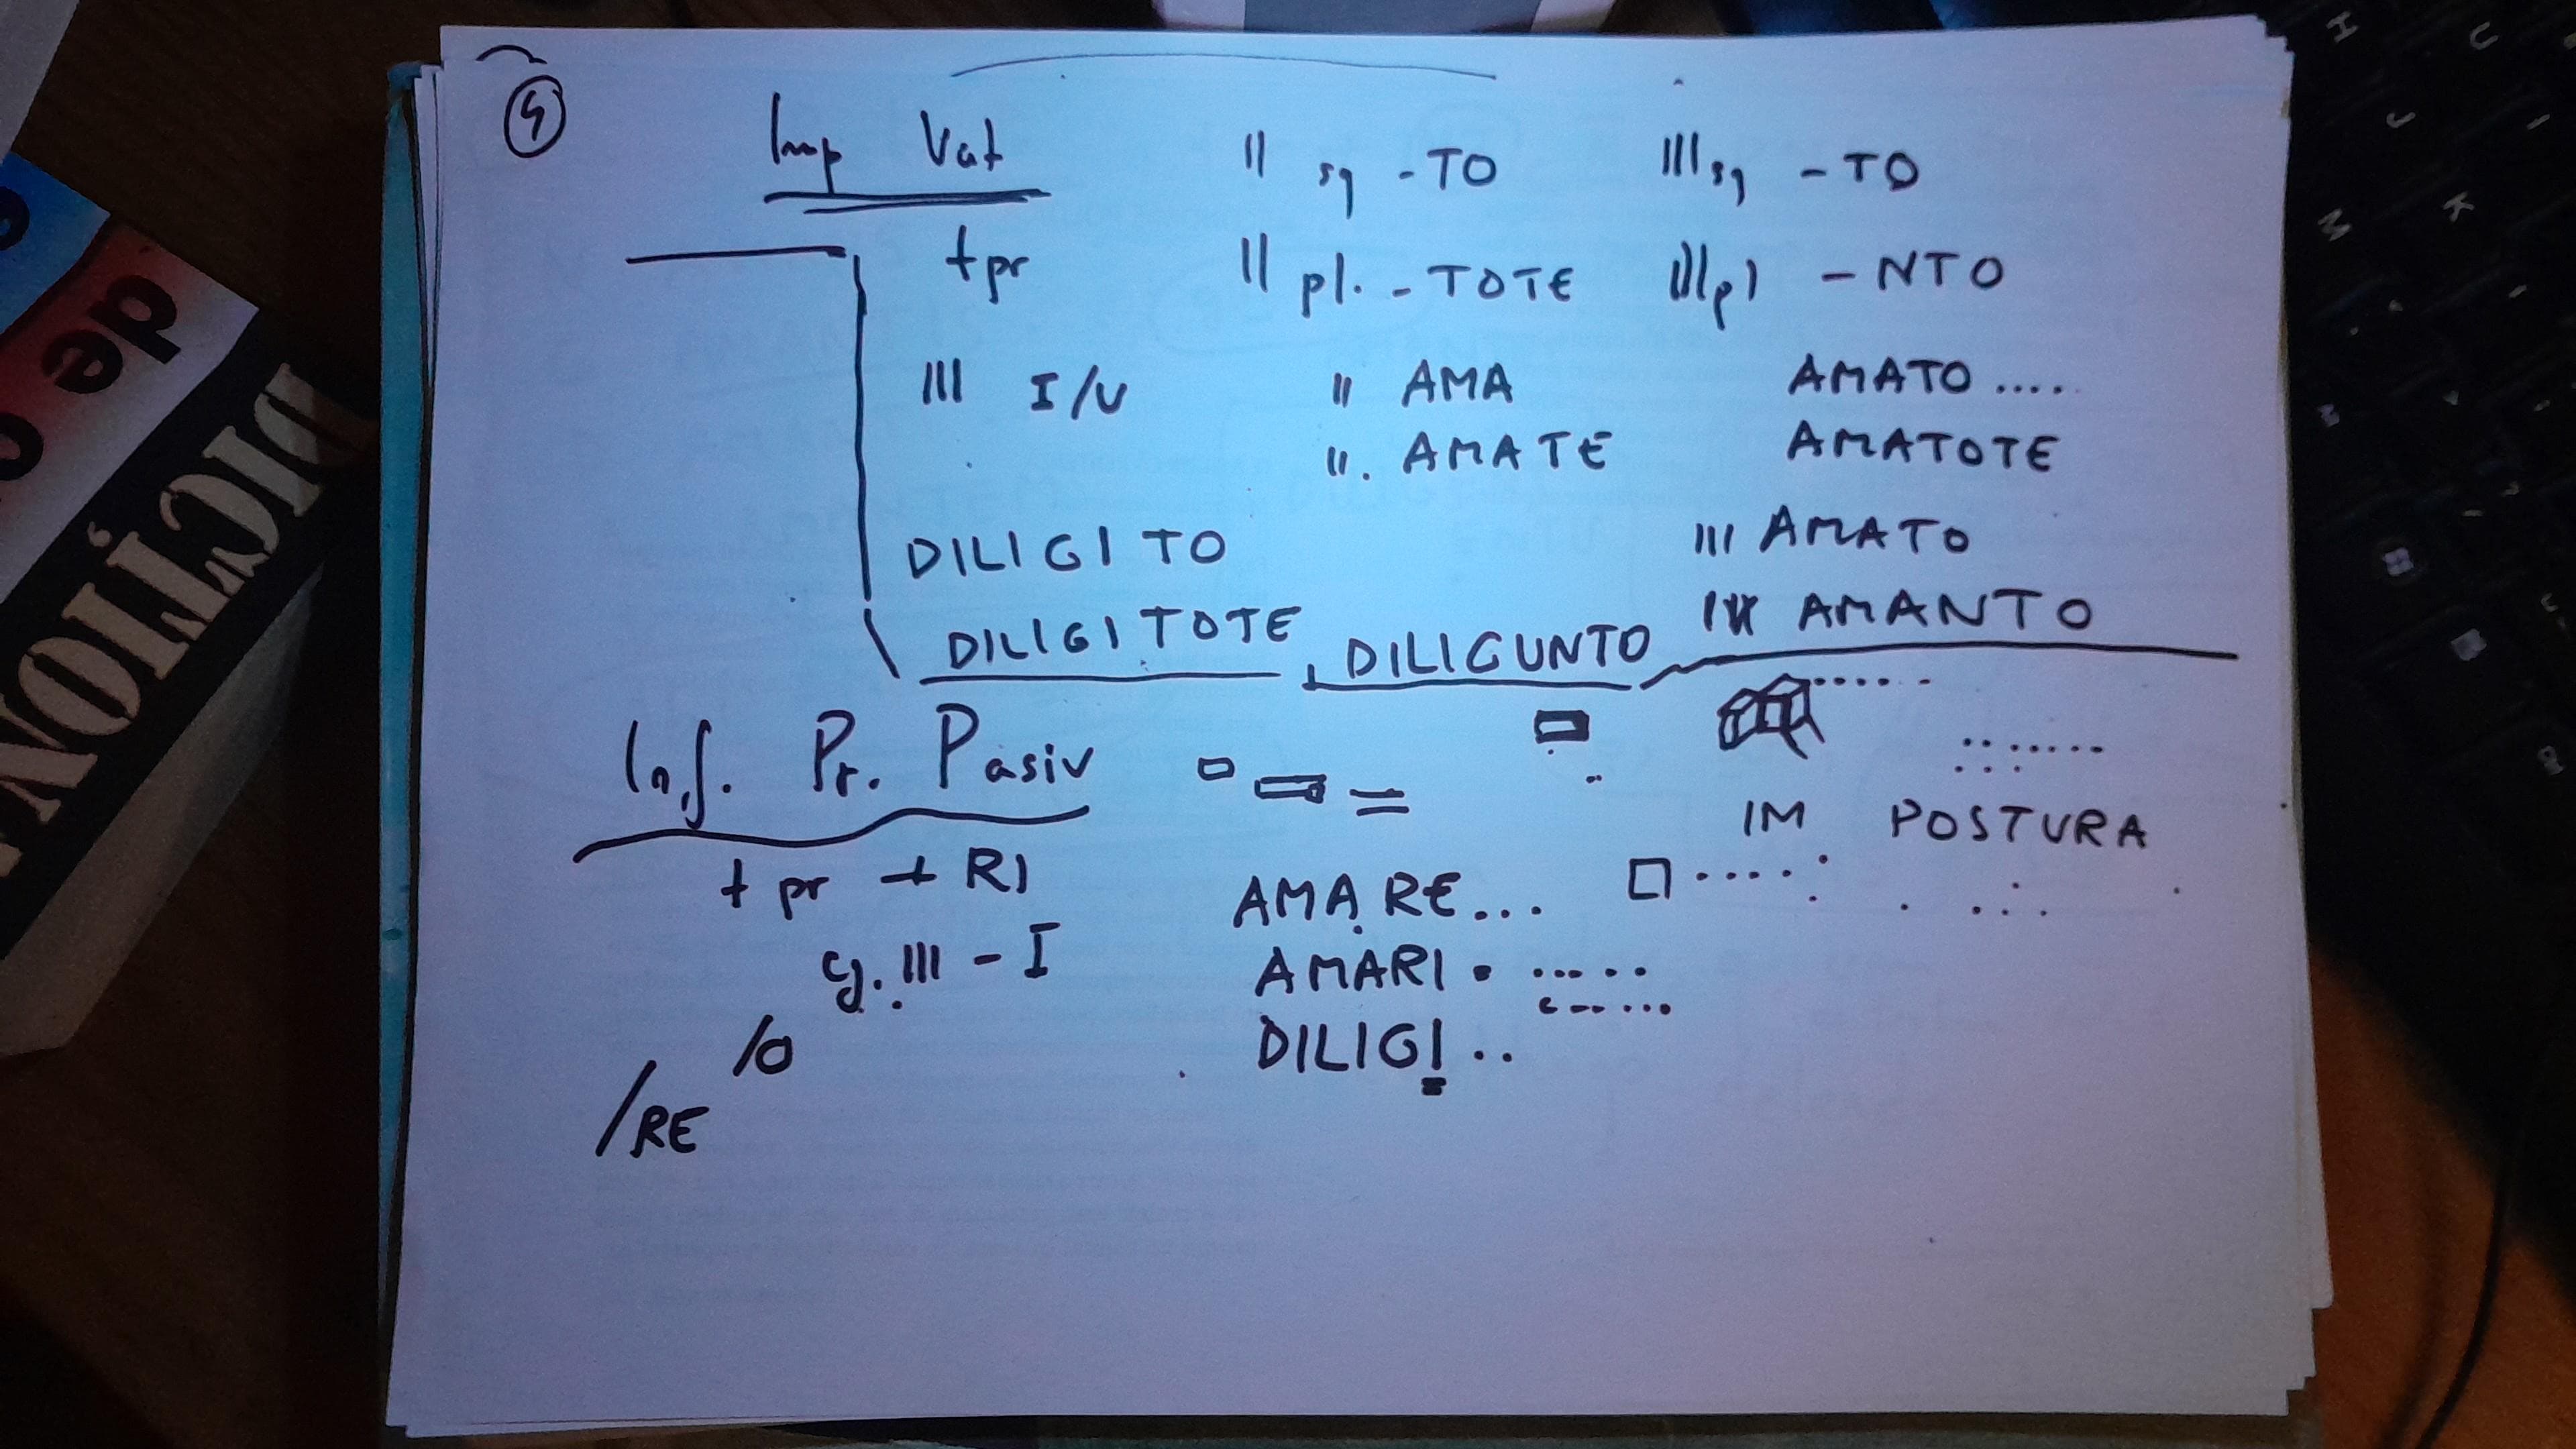 9
Imp Vat II sg -TO III sg -TO
t pr II pl. -TOTE III pl -NTO
III I/U II AMA AMATO ....
II. AMATE AMATOTE
DILIGITO III AMATO
DILIGITOTE, DILIGUNTO III AMANTO
Inf. Pr. Pasiv
IM POSTURA
t pr + RI AMARE...
cj. III - I AMARI
/O DILIGI ..
/RE
de
DICȚION
H
U
J
I
M
K